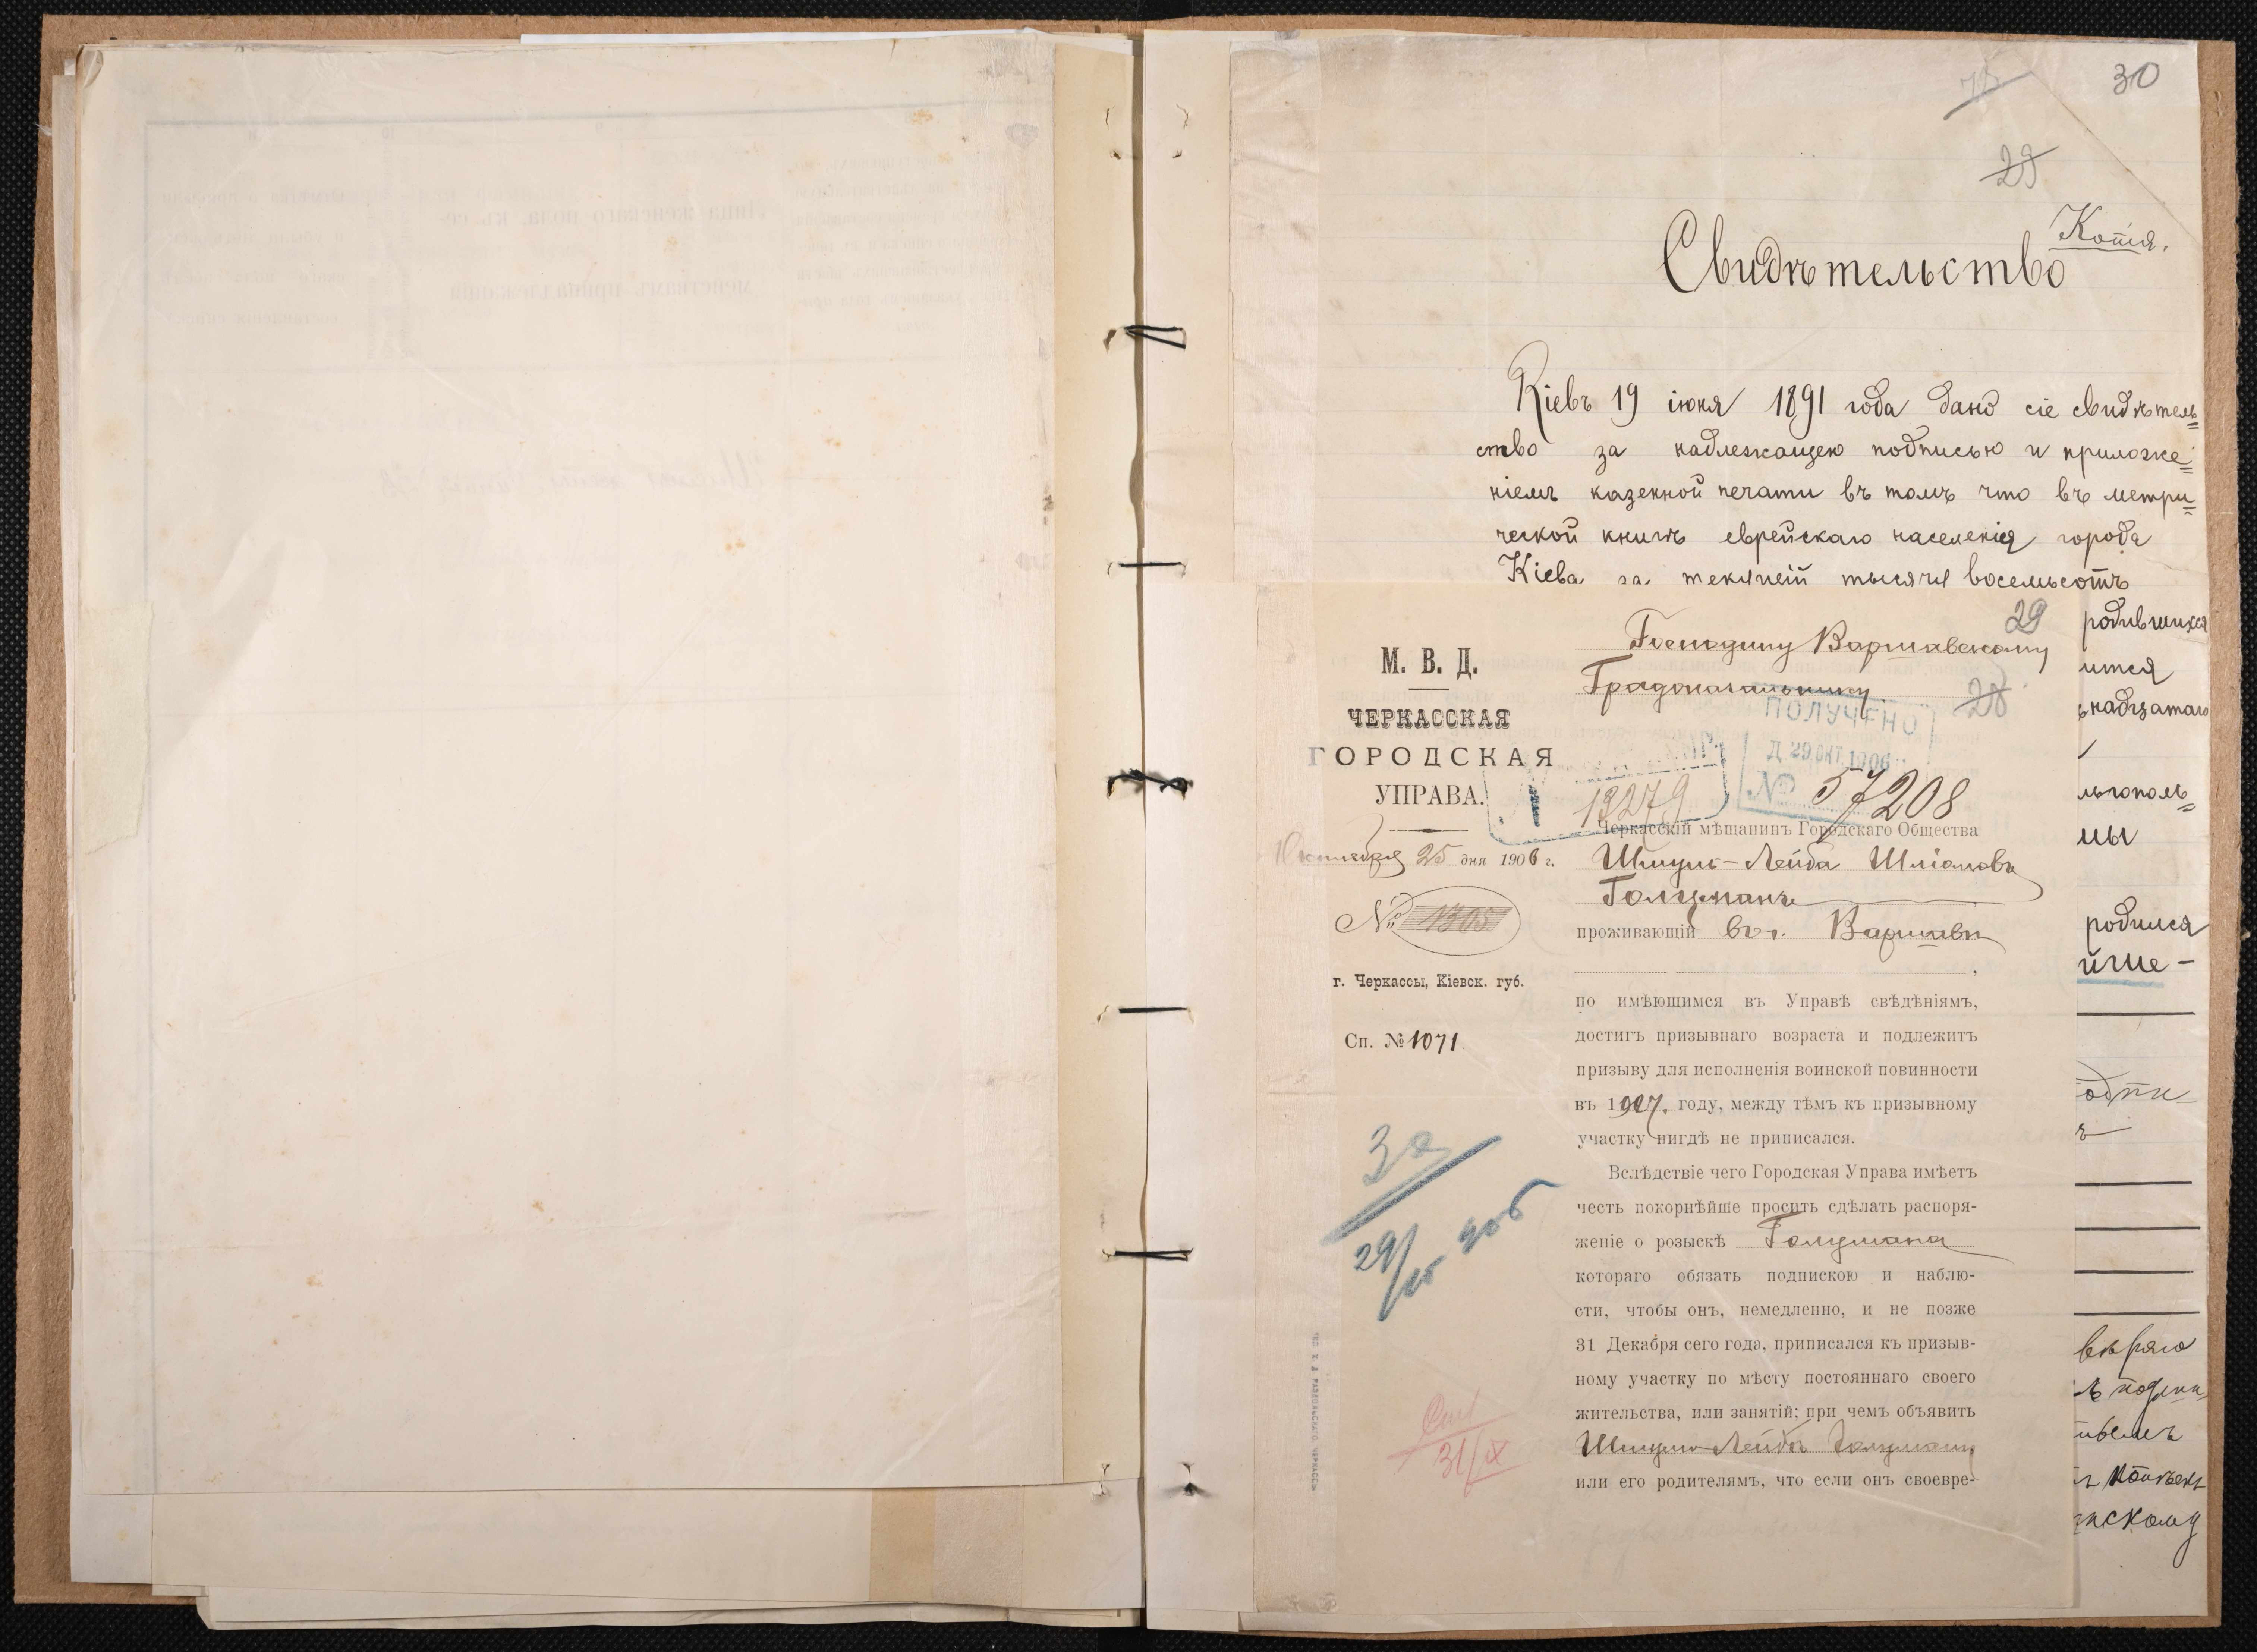 30
29
Копія.
Свидѣтельство
Кіевъ 19 іюня 1891 года дано сіе свидѣтель=
ство за надлежащею подписью и приложе=
ніемъ казенной печати въ томъ что въ метри=
ческой книгѣ еврейскаго населенія города
Кіева за текущій тысяча восемьсотъ
родившихся
ится
ьнадцатаго
льгополь=
цы
родился
йше-
одпи
вѣряю
29
Господину Варшавскому
Градоначальнику
28
М. В. Д.
ЧЕРКАССКАЯ
ГОРОДСКАЯ
УПРАВА.
ПОЛУЧЕНО
Д 29 ОКТ 1906
№ 57208
19279
Октября 25 дня 1906 г.
№ 1305
г. Черкассы, Кіевск. губ.
Сп. № 1071
Черкасскій мѣщанинъ Городскаго Общества
Шмуль-Лейба Шліомовъ
Голцманъ
проживающій въ г. Варшавѣ
,
по имѣющимся въ Управѣ свѣдѣніямъ,
достигъ призывнаго возраста и подлежитъ
призыву для исполненія воинской повинности
въ 1907. году, между тѣмъ къ призывному
участку нигдѣ не приписался.
Вслѣдствіе чего Городская Управа имѣетъ
честь покорнѣйше просить сдѣлать распоря-
женіе о розыскѣ Голцмана
котораго обязать подпискою и наблю-
сти, чтобы онъ, немедленно, и не позже
31 Декабря сего года, приписался къ призыв-
ному участку по мѣсту постояннаго своего
жительства, или занятій; при чемъ объявить
Шмулю-Лейбѣ Голцману
или его родителямъ, что если онъ своевре-
31/X